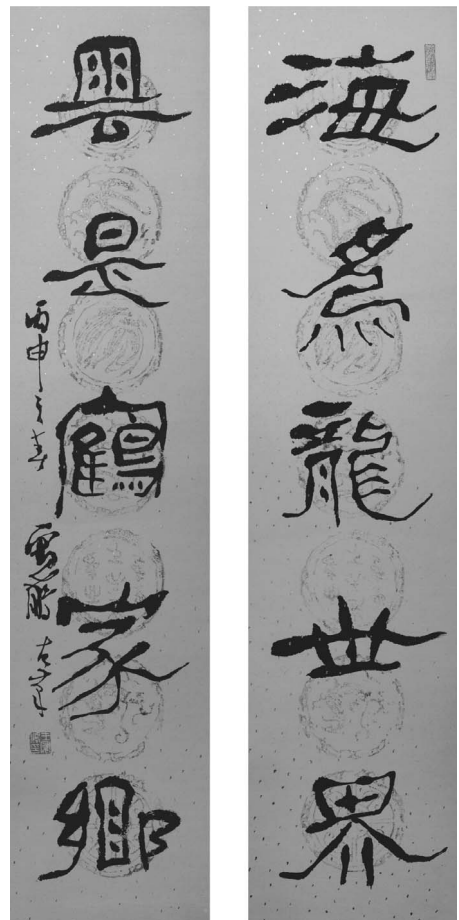 海為龍世界
雲是鶴家鄉
丙申之春